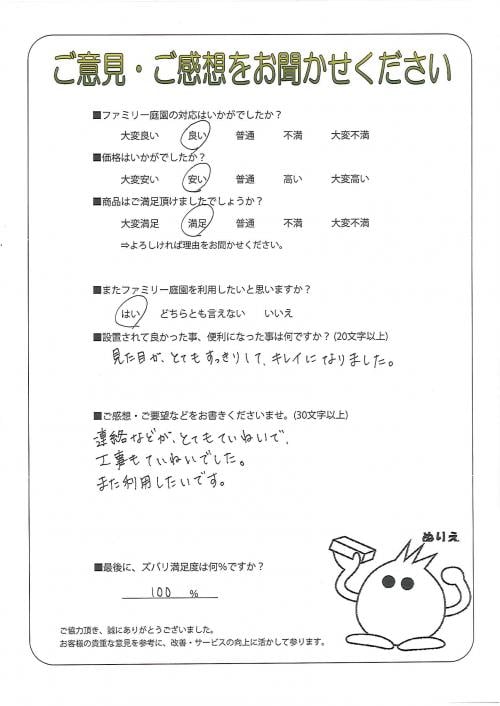 ご意見・ご感想をお聞かせください
■ファミリー庭園の対応はいかがでしたか？
大変良い 良い 普通 不満 大変不満
■価格はいかがでしたか？
大変安い 安い 普通 高い 大変高い
■商品はご満足頂けましたでしょうか？
大変満足 満足 普通 不満 大変不満
⇒よろしければ理由をお聞かせください。
■またファミリー庭園を利用したいと思いますか？
はい どちらとも言えない いいえ
■設置されて良かった事、便利になった事は何ですか？(20文字以上)
見た目が、とてもすっきりして、キレイになりました。
■ご感想・ご要望などをお書きくださいませ。(30文字以上)
連絡などが、とてもていねいで、
工事もていねいでした。
また利用したいです。
ぬりえ
■最後に、ズバリ満足度は何％ですか？
100 %
ご協力頂き、誠にありがとうございました。
お客様の貴重な意見を参考に、改善・サービスの向上に活かして参ります。